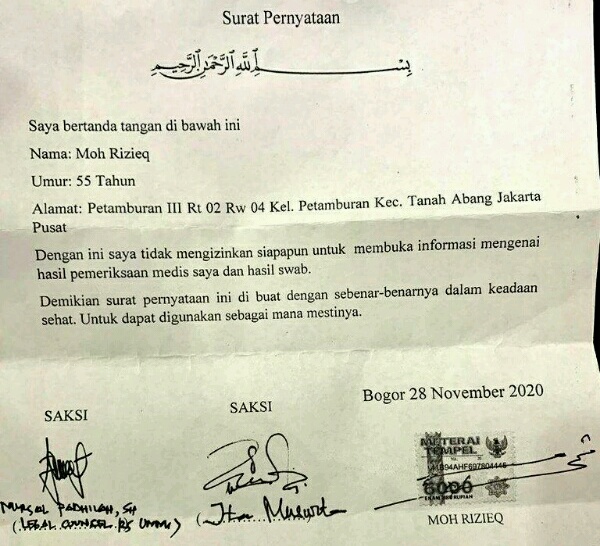 Surat Pernyataan
بِسْمِ اللهِ الرَّحْمٰنِ الرَّحِيْمِ
Saya bertanda tangan di bawah ini
Nama: Moh Rizieq
Umur: 55 Tahun
Alamat: Petamburan III Rt 02 Rw 04 Kel. Petamburan Kec. Tanah Abang Jakarta
Pusat
Dengan ini saya tidak mengizinkan siapapun untuk membuka informasi mengenai
hasil pemeriksaan medis saya dan hasil swab.
Demikian surat pernyataan ini di buat dengan sebenar-benarnya dalam keadaan
sehat. Untuk dapat digunakan sebagai mana mestinya.
Bogor 28 November 2020
SAKSI
SAKSI
METERAI
TEMPEL
6000
ENAM RIBU RUPIAH
NURSAL FADHILAH, SH
(LEGAL COUNSEL RS UMMI)
MOH RIZIEQ